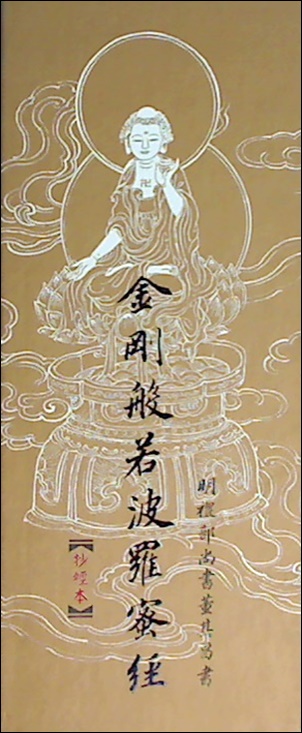 金剛般若波羅蜜經
明禮部尚書董其昌書
【抄經本】
卍